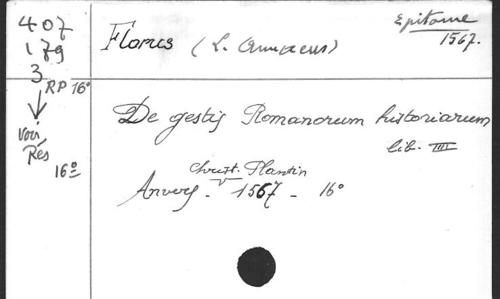 407
179
3
RP 16°
voir
Rés
16°
Florus (L. Annaeus)
Epitome
1567.
De gestis Romanorum historiarum
lib. IIII
Christ. Plantin
Anvers. 1567 - 16°